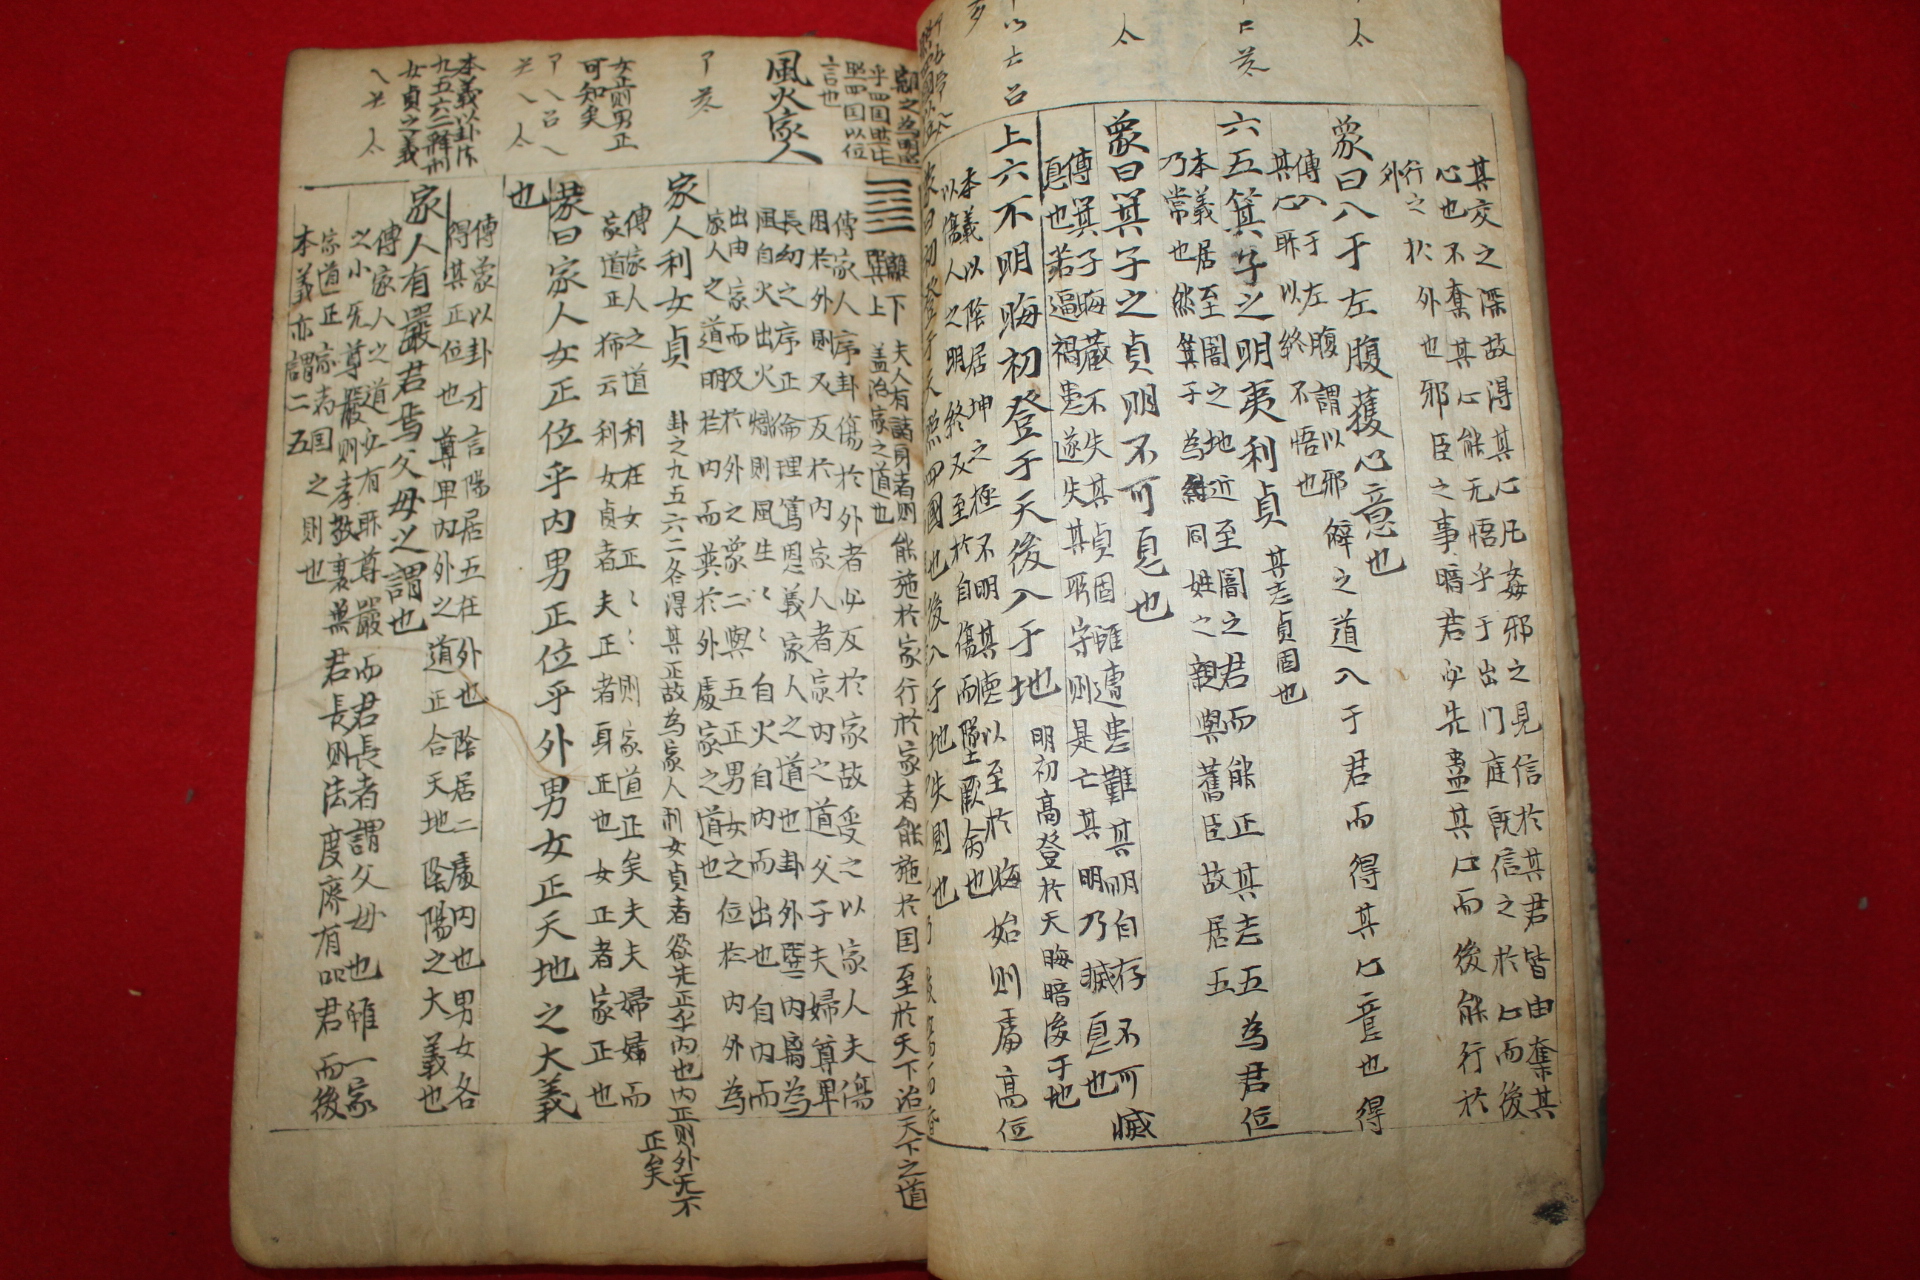 其交之深故得其心凡姦邪之見信於其君皆由奪其
心也不奪其心能无悟乎于出门庭既信之於心而後
行之於外也邪臣之事暗君必先蠱其心而後能行於
外
象曰入于左腹獲心意也
傳入于左腹謂以邪僻之道入于君而得其心意也得
其心所以終不悟也
六五箕子之明夷利貞
其志貞固也
本義居至闇之地近至闇之君而能正其志五為君位
乃常也然箕子為紂同姓之親與舊臣故居五
象曰箕子之貞明不可息也
傳箕子晦藏不失其貞固雖遭患難其明自存不可滅
息也若逼禍患遂失其所守則是亡其明乃滅息也
上六不明晦初登于天後入于地
明初高登於天晦暗後于地
本義以陰居坤之極不明其德以至於晦始則處高位
以傷人之明終及至於自傷而墜厥命也
象曰初登于天照四國也後入于地失則也
風火家人
離下
巽上
夫人有諸身者則能施於家行於家者能施於国至於天下治天下之道
盖治家之道也
傳家人序卦傷於外者必反於家故受之以家人夫傷
困於外則及反於內家人者家內之道父子夫婦尊卑
長幼之序正倫理篤恩義家人之道也卦外巽內离為
風自火出火熾則風生〻〻自火自內而出也自內而
出由家而及於外之象二與五正男女之位於內外為
家人之道明於內而巽於外處家之道也
家人利女貞
卦之九五六二各得其正故為家人利女貞者欲先正乎內也內正則外无不
正矣
女正則男正
可知矣
傳家人之道利在女正〻〻則家道正矣夫夫婦婦而
家道正獨云利女貞者夫正者身正也女正者家正也
彖曰家人女正位乎内男正位乎外男女正天地之大義
也
本義以卦体
九五六二釋利
女貞之義
傳彖以卦才言陽居五在外也陰居二處内也男女各
得其正位也尊卑內外之道正合天地陰陽之大義也
家人有嚴君焉父母之謂也
傳家人之道必有所尊嚴而君長者謂父母也雖一家
之小无尊嚴則孝敬衰無君長則法度廢有嚴君而後
家道正家者国之則也
本義亦謂二五